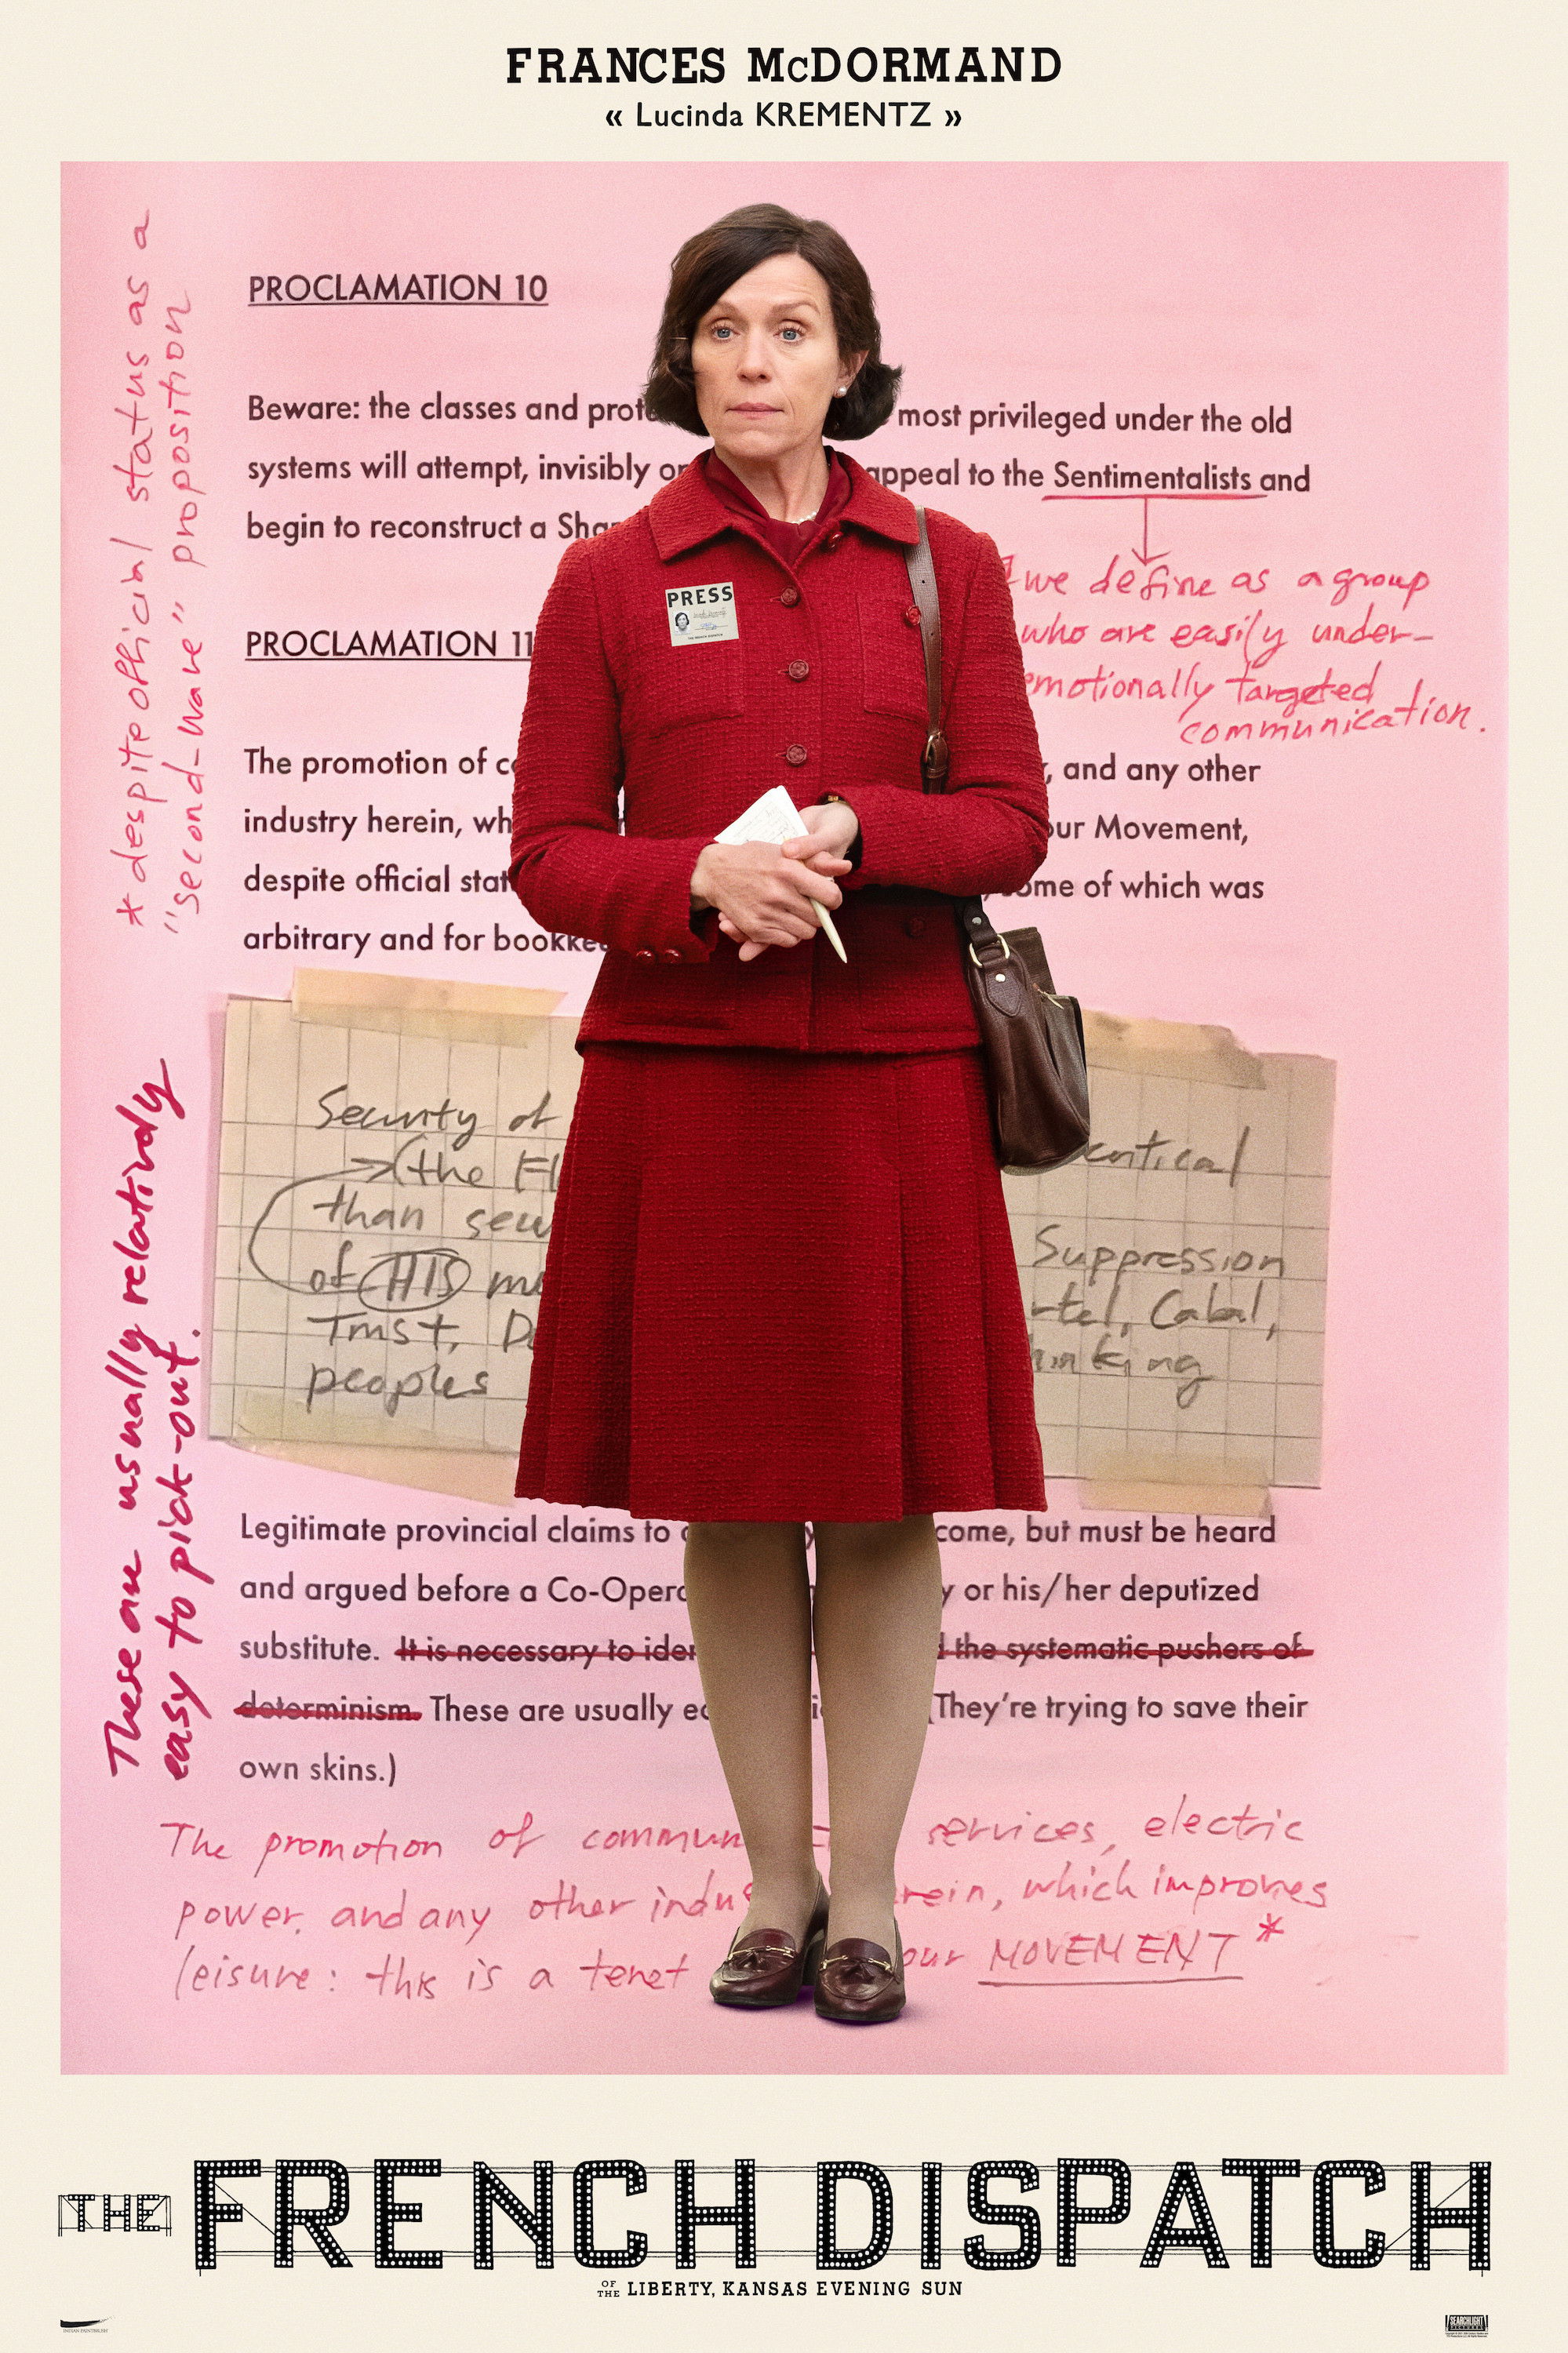 FRANCES McDORMAND
« Lucinda KREMENTZ »
* despite official status as a
"second-wave" proposition
PROCLAMATION 10
Beware: the classes and most privileged under the old
systems will attempt, invisibly appeal to the Sentimentalists and
begin to reconstruct a
we define as a group
who are easily under-
emotionally targeted
communication.
PRESS
PROCLAMATION 11
The promotion of and any other
industry herein, our Movement,
despite official some of which was
arbitrary and for
Security of
(the
than
of HIS
Trust,
peoples
critical
Suppression
Cabal,
These are usually relatively
easy to pick-out.
Legitimate provincial claims to but must be heard
and argued before a or his/her deputized
substitute. It is necessary to the systematic pushers of
determinism. These are usually (They're trying to save their
own skins.)
The promotion of services, electric
power, and any other which improves
leisure: this is a tenet our MOVEMENT *
THE FRENCH DISPATCH
OF THE LIBERTY, KANSAS EVENING SUN
INDIAN PAINTBRUSH
SEARCHLIGHT
PICTURES